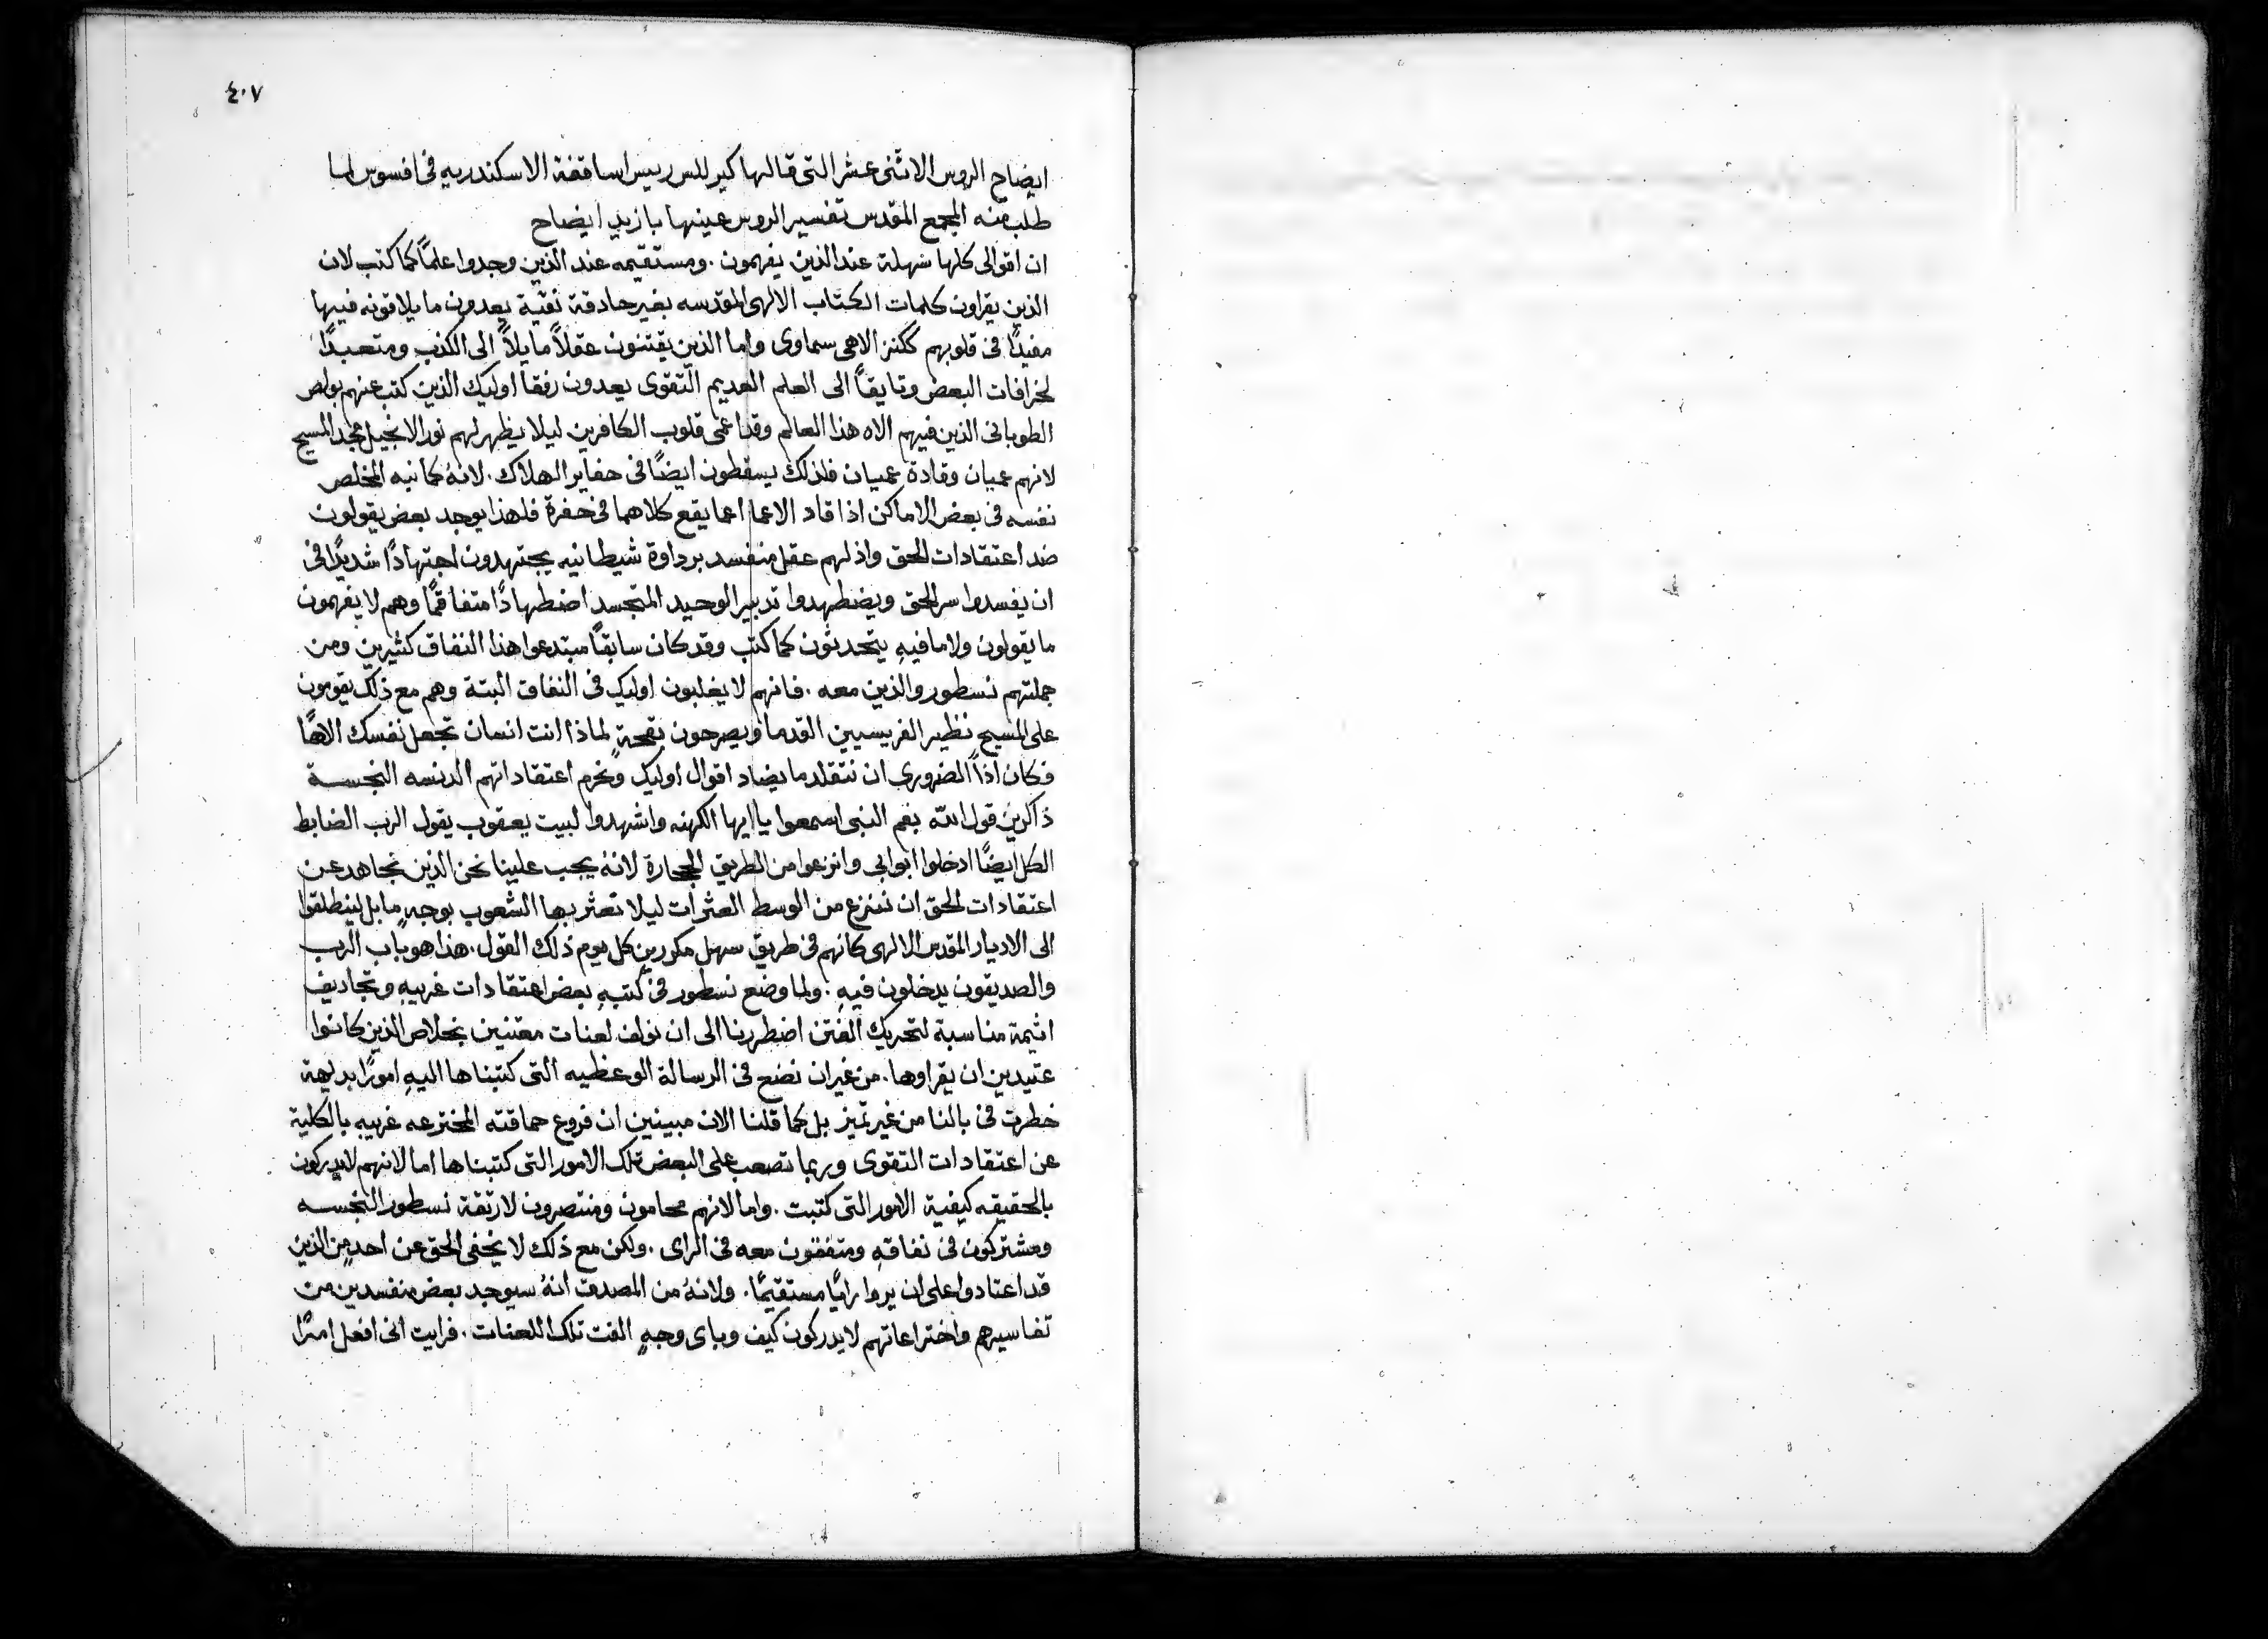 ٤٠٧
ايضاح الروس الاثنى عشر التى قالها كيرللس رييس اساقفة الاسكندريه فى افسوس لما
طلب منه المجمع المقدس تفسير الروس عينها بازيد ايضاح
ان اقوالى كلها سهلة عند الذين يفهمون . ومستقيمه عند الذين وجدوا علمًا كما كتب لان
الذين يقراون كلمات الكتاب الالهى المقدسه بغير حادقة نقية يعدون ما يلاقونه فيها
مفيدًا فى قلوبهم ككنز الاهى سماوى واما الذين يقتنون عقلاً مايلاً الى الكذب ومتعبدًا
لخرافات البعض وتايقًا الى العلم العديم التقوى يعدون رفقا اوليك الذين كتب عنهم بولص
الطوبانى الذين فيهم الاه هذا العالم وقد اعمى قلوب الكافرين ليلا يظهر لهم نور الانجيل مجد المسيح
لانهم عميان وقادة عميان فلذلك يسقطون ايضًا فى حفاير الهلاك . لانهُ كما نبه المخلص
نفسه فى بعض الاماكن اذا قاد الاعما اعما يقع كلاهما فى حفرة فلهذا يوجد بعض يقولون
ضد اعتقادات الحق واذ لهم عقل منفسد برداوة شيطانيه يجتهدون اجتهادًا شديدًا فى
ان يفسدوا سر الحق ويضطهدوا تدبير الوحيد المتجسد اضطهادًا متفاقمًا وهم لا يفهمون
ما يقولون ولا ما فيهِ يتحدثون كما كتب وقد كان سابقًا مبتدعوا هذا النفاق كثيرين ومن
جملتهم نسطور والذين معه . فانهم لا يغلبون اوليك فى النفاق البتة وهم مع ذلك يقومون
على المسيح نظير الفريسيين القدما ويصرحون بقحةٍ لماذا انت انسان تجعل نفسك الاهًا
فكان اذاً الضرورى ان نتقلد ما يضاد اقوال اوليك ونحرم اعتقاداتهم الدنسه النجسة
ذاكرين قول الله بفم النبى اسمعوا يا ايها الكهنه واشهدوا لبيت يعقوب يقول الرب الضابط
الكل ايضًا ادخلوا ابوابى وانزعوا من الطريق الحجارة لانهُ يجب علينا نحن الذين نجاهد عن
اعتقادات الحق ان ننزع من الوسط العثرات ليلا تعثر بها الشعوب بوجهٍ ما بل لينطلقوا
الى الاديار المقدس الالهى كانهم فى طريق سهل مكررين كل يوم ذلك القول . هذا هو باب الرب
والصديقون يدخلون فيهِ . ولما وضع نسطور فى كتبهِ بعض اعتقادات غريبهٍ وتجاديف
اثيمة مناسبة لتحريك الفتن اضطررنا الى ان نولف لعنات معتنين بخلاص الذين كانوا
عتيدين ان يقراوها . من غير ان نضع فى الرسالة الوعظيه التى كتبناها اليهِ امورًا بديهة
خطرت فى بالنا من غير تميز بل كما قلنا الان مبينين ان فروع حماقته المخترعه غريبه بالكلية
عن اعتقادات التقوى وربما تصعب على البعض تلك الامور التى كتبناها اما لانهم لا يدركون
بالحقيقه كيفية الامور التى كتبت . واما لانهم محامون ومنتصرون لارتقة نسطور النجسه
ومشتركون فى نفاقهِ ومتفقون معه فى الراى . ولكن مع ذلك لا يخفى الحق عن احدٍ من الذين
قد اعتادوا على ان يروا رايًا مستقيمًا . ولانهُ من المصدق انهُ سيوجد بعض منفسدين من
تفاسيرهم واختراعاتهم لا يدركون كيف وباى وجهٍ الفت تلك اللعنات . فرايت انى افعل امرًا